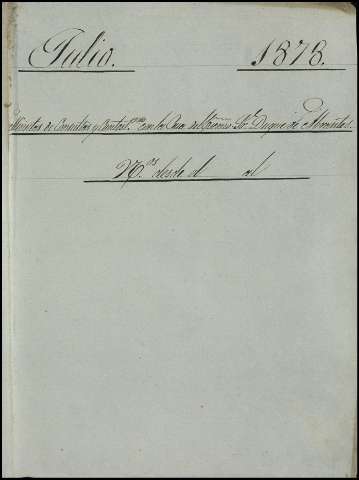 Julio. 1878.
Minutas de Consultas y Contest.nes con la Casa del Excmo. Sr. Duque de Abrantes.
N.os desde el al